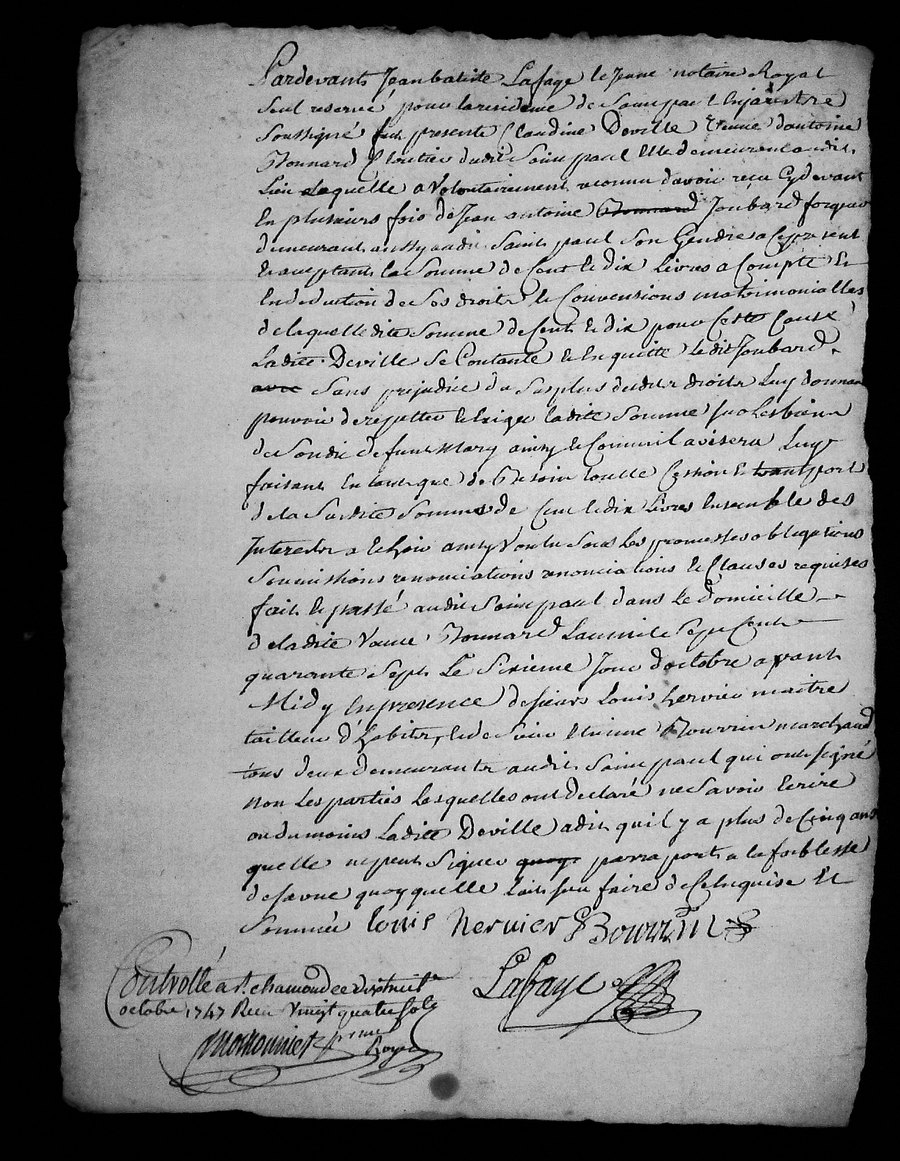 Pardevant Jean batiste Lafage le Jeune notaire Royal
seul reservé pour la residence de Saint paul Enjarestre
soussigné fut presente Claudine Deville veuve d'antoine
Bonnard Cloutier dudit Saint paul Elle demeurant audit
Lieu Laquelle a volontairement reconnu d'avoir recu Cydevant
En plusieurs fois de Jean antoine Bonnard Joubard forgeur
demeurant aussy audit Saint paul son Gendre a Ce present
et aceptant la somme de Cent et dix Livres a Compte Et
En deduction de ses droits et Conventions matrimonialles
de laquelle dite somme de Cent et dix pour Cette Cause
Ladite Deville se Contante et En quitte ledit Joubard
avec sans prejudice du surplus desdits droits Luy donnant
pouvoir de repetter et Exiger ladite somme sur les biens
de sondit defunt Mary ainsy et Comme il avisera Luy
faisant En tant que de Besoin toutte Cession et transport
de la susdite somme de Cent et dix Livres Ensemble des
Interests a Echoir ainsy voulu sous les promesses obligations
soumissions renonciations renonciations et Clauses requises
fait et passé audit Saint paul dans le domicille
de ladite veuve Bonnard L'an mil sept Cent
quarante sept Le sixieme Jour d'octobre avant
Midy En presence de sieurs Louis hervier maitre
tailleur d'habits, et de sieur Etienne Bourrin marchand
tous deux demeurants audit Saint paul qui ont signé
non Les parties Lesquelles ont declaré ne savoir Ecrire
ou du moins Ladite Deville a dit qu'il y a plus de Cinq ans
quelle ne peut signer quoy par raport a la foiblesse
de sa vue quoy quelle L'ait sceu faire de Ce Enquise Et
Sommée Louis Hervier Bourrin
Lafage
Controllé a St. chamond ce dix huit
octobre 1747 Recu vingt quatre sols